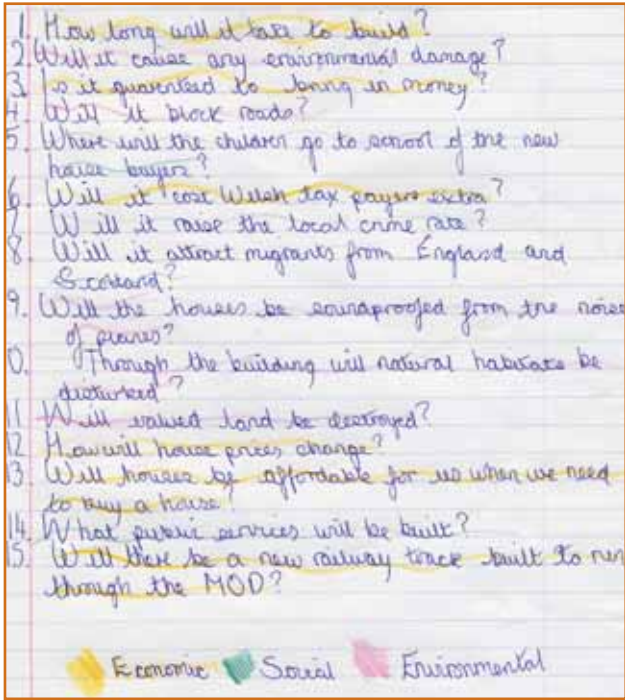 1. How long will it take to build?
2. Will it cause any environmental damage?
3. Is it guarenteed to bring in money?
4. Will it block roads?
5. Where will the children go to school of the new
house buyers?
6. Will it cost Welsh tax payers extra?
7. Will it raise the local crime rate?
8. Will it attract migrants from England and
Scotland?
9. Will the houses be soundproofed from the noise
of planes?
0. Through the building will natural habitats be
disturbed?
11 Will valued land be destroyed?
12 How will house prices change?
13. Will houses be affordable for us when we need
to buy a house?
14. What public services will be built?
15. Will there be a new railway track built to run
through the MOD?
Economic Social Environmental